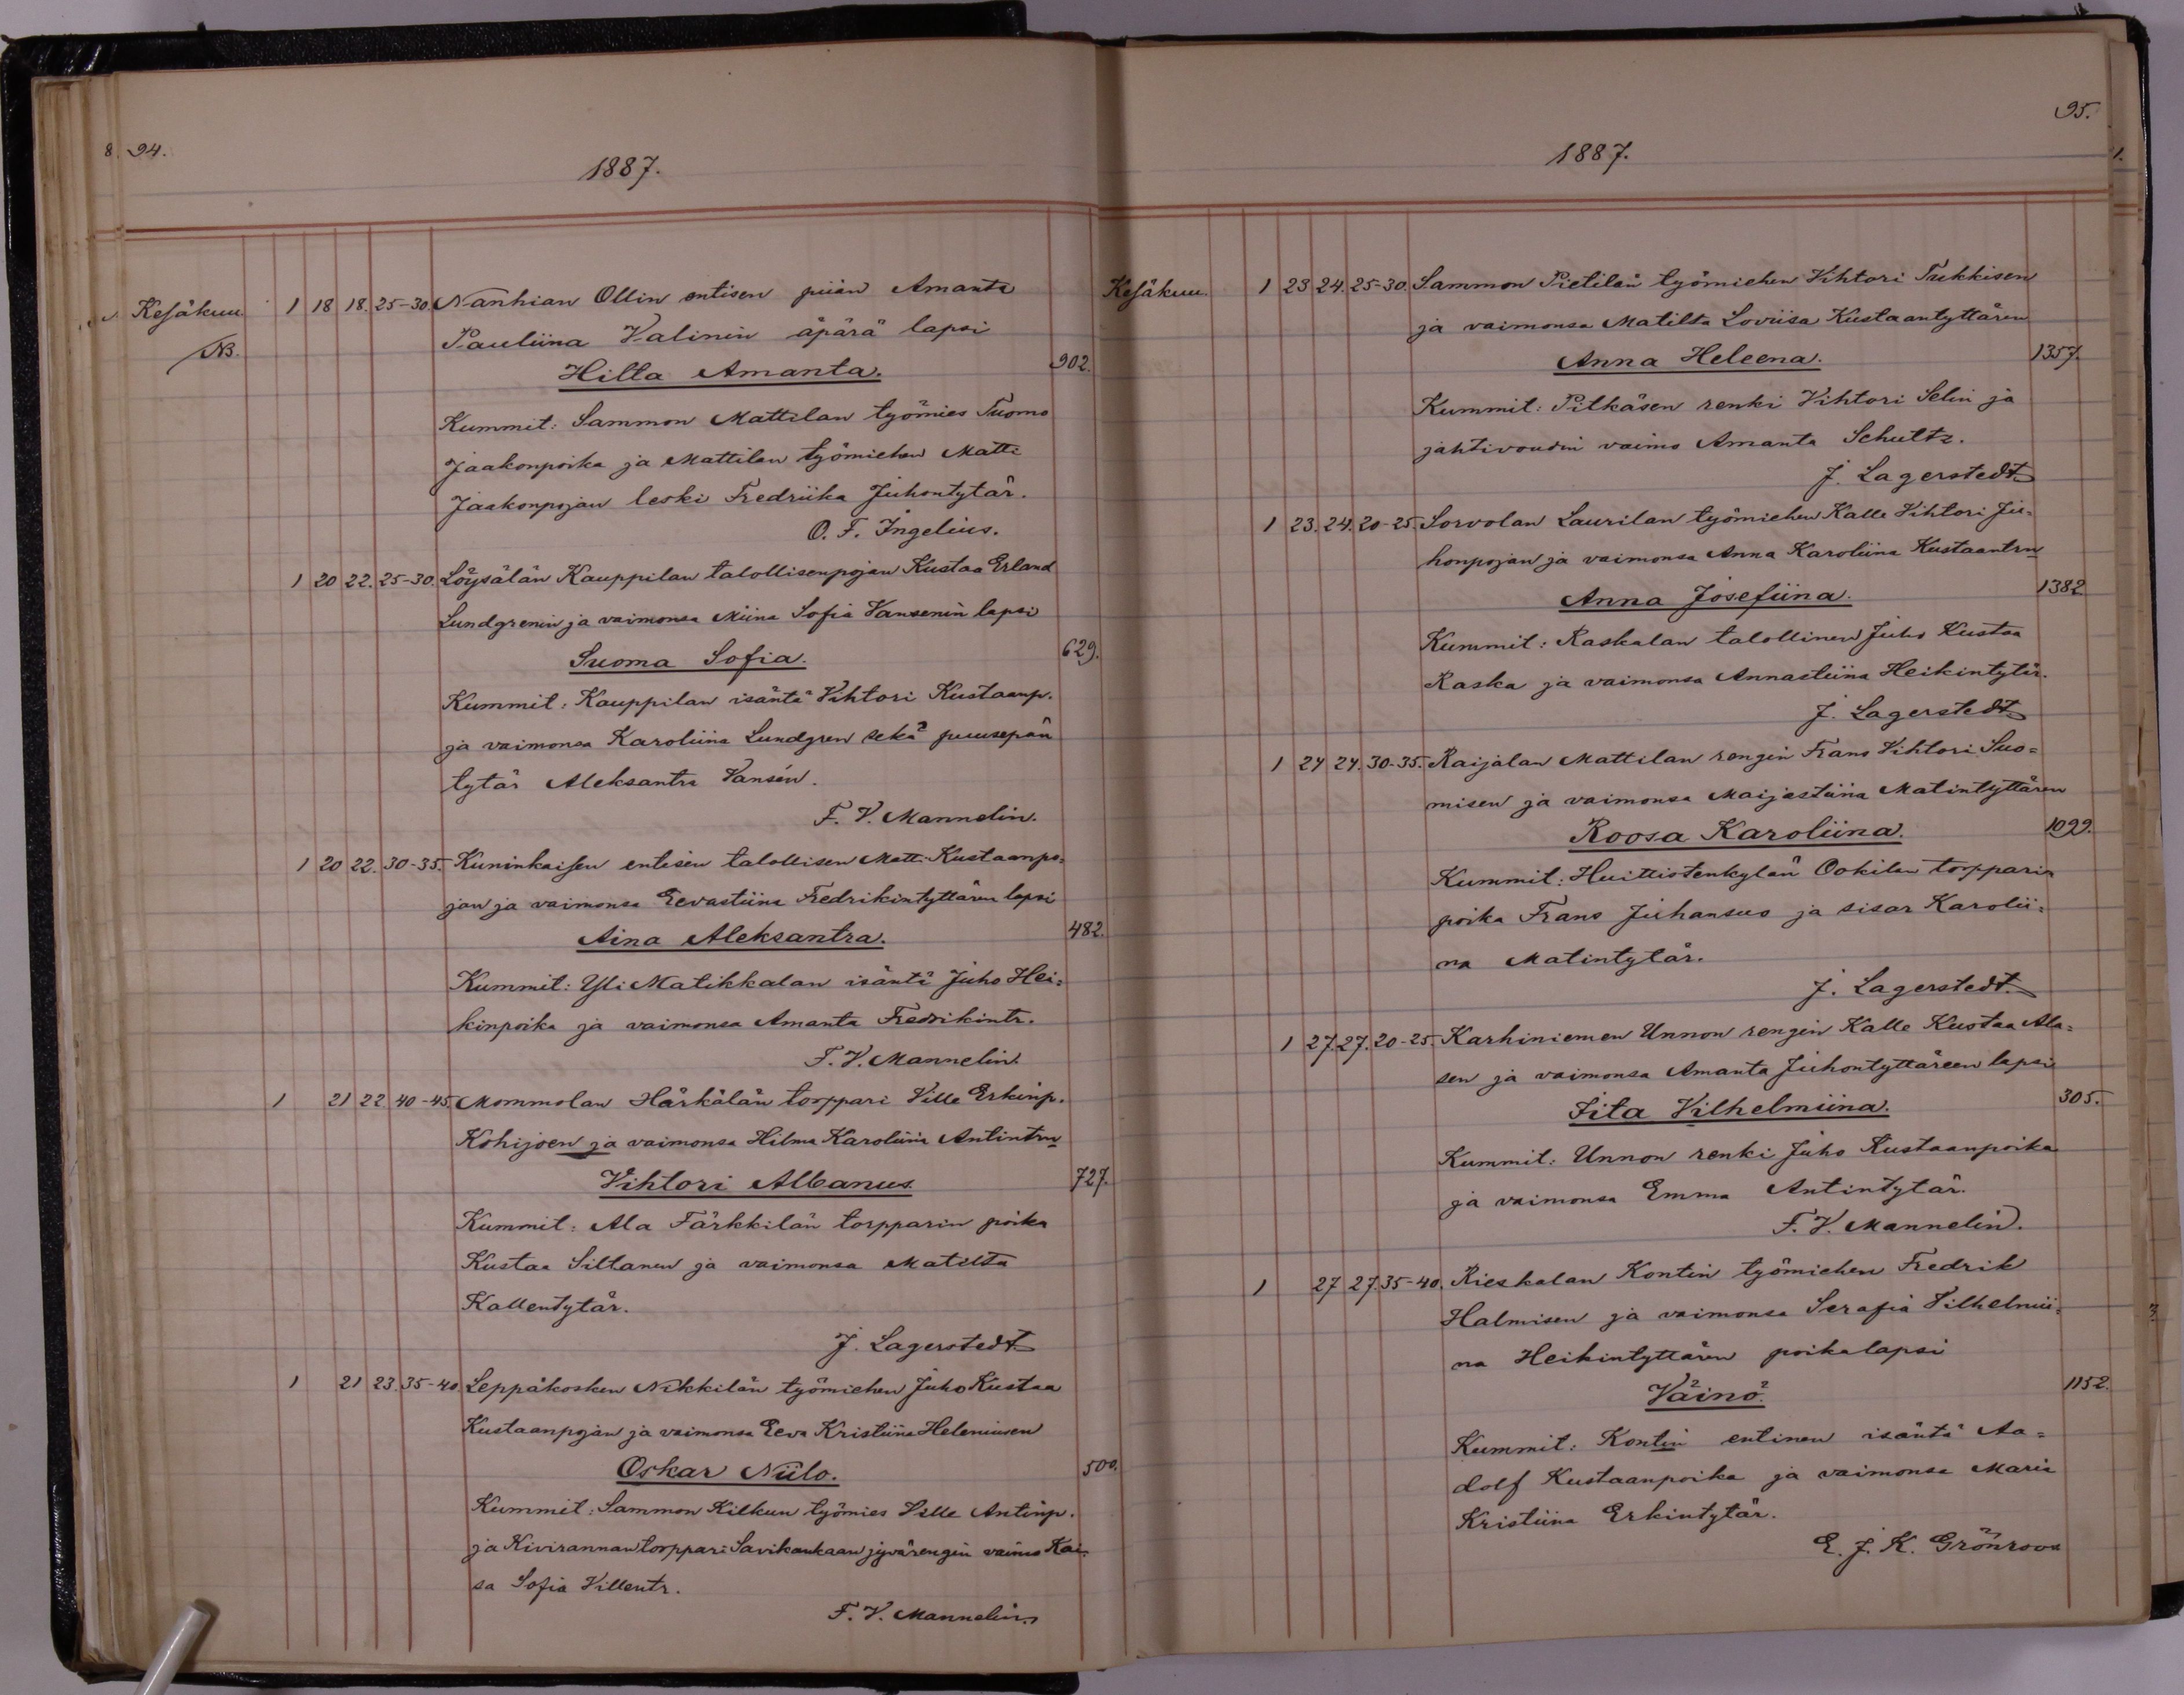 94.
1887.
Kesäkuu. 1 18 18. 25-30. Nanhian Ollin entisen piian Amanta
NB. Pauliina Valinin äpärä lapsi
Hilta Amanta. 902.
Kummit: Sammon Mattilan työmies Tuomo
Jaakonpoika ja Mattilan työmiehen Matti
Jaakonpojan leski Fredriika Juhontytär.
O. F. Ingelius.
1 20 22. 25-30. Löysälän Kauppilan talollisenpojan Kustaa Erland
Lundgrenin ja vaimonsa Miina Sofia Vansenin lapsi
Suoma Sofia. 629.
Kummit: Kauppilan isäntä Vihtori Kustaanp.
ja vaimonsa Karoliina Lundgren sekä puusepän
tytär Aleksantra Vansén.
F. V. Mannelin.
1 20 22. 30-35. Kuninkaisen entisen talollisen Matti Kustaanpo=
jan ja vaimonsa Eevastiina Fredrikintyttären lapsi
Aina Aleksantra. 482.
Kummit: Yli Matikkalan isäntä Juho Hei=
kinpoika ja vaimonsa Amanta Fredrikintr.
F. V. Mannelin.
1 21 22 40-45. Mommolan Härkälän torppari Ville Erkinp.
Kohijoen ja vaimonsa Hilma Karoliina Antintrn
Vihtori Albanus 727.
Kummit: Ala Färkkilän torpparin poika
Kustaa Siltanen ja vaimonsa Matilta
Kallentytär.
J. Lagerstedt
1 21 23. 35-40. Leppäkosken Nikkilän työmiehen Juho Kustaa
Kustaanpojan ja vaimonsa Eeva Kristiina Heleniusen
Oskar Niilo. 500.
Kummit: Sammon Kilkun työmies Ville Antinp.
ja Kivirannan torppari Savikankaan jyvärengin vaimo Kai=
sa Sofia Villentr.
F. V. Mannelin.
95.
1887.
Kesäkuu. 1 23 24. 25-30. Sammon Pietilän työmiehen Vihtori Tukkisen
ja vaimonsa Matilta Loviisa Kustaantyttären
Anna Heleena. 1357.
Kummit: Pitkäsen renki Vihtori Selin ja
jahtivoudin vaimo Amanta Schultz.
J. Lagerstedt
1 23. 24. 20-25. Sorvolan Laurilan työmiehen Kalle Vihtori Ju=
honpojan ja vaimonsa Anna Karoliina Kustaantrn
Anna Josefiina. 1382
Kummit: Raskalan talollinen Juho Kustaa
Raska ja vaimonsa Annastiina Heikintytär.
J. Lagerstedt
1 24 24. 30-35. Raijalan Mattilan rengin Frans Vihtori Suo=
misen ja vaimonsa Maijastiina Matintyttären
Roosa Karoliina. 1099.
Kummit: Huittistenkylän Ookilan torpparin
poika Frans Juhansuo ja sisar Karolii=
na Matintytär.
J. Lagerstedt.
1 27. 27. 20-25. Karhiniemen Unnon rengin Kalle Kustaa Ala=
sen ja vaimonsa Amanta Juhontyttäreen lapsi
Iita Vilhelmiina. 305.
Kummit: Unnon renki Juho Kustaanpoika
ja vaimonsa Emma Antintytär.
F. V. Mannelin.
1 27 27. 35-40. Rieskalan Kontin työmiehen Fredrik
Halmisen ja vaimonsa Serafia Vilhelmii=
na Heikintyttären poikalapsi
Väinö. 1152.
Kummit: Kontin entinen isäntä Aa=
dolf Kustaanpoika ja vaimonsa Maria
Kristiina Erkintytär.
E. J. K. Grönroos